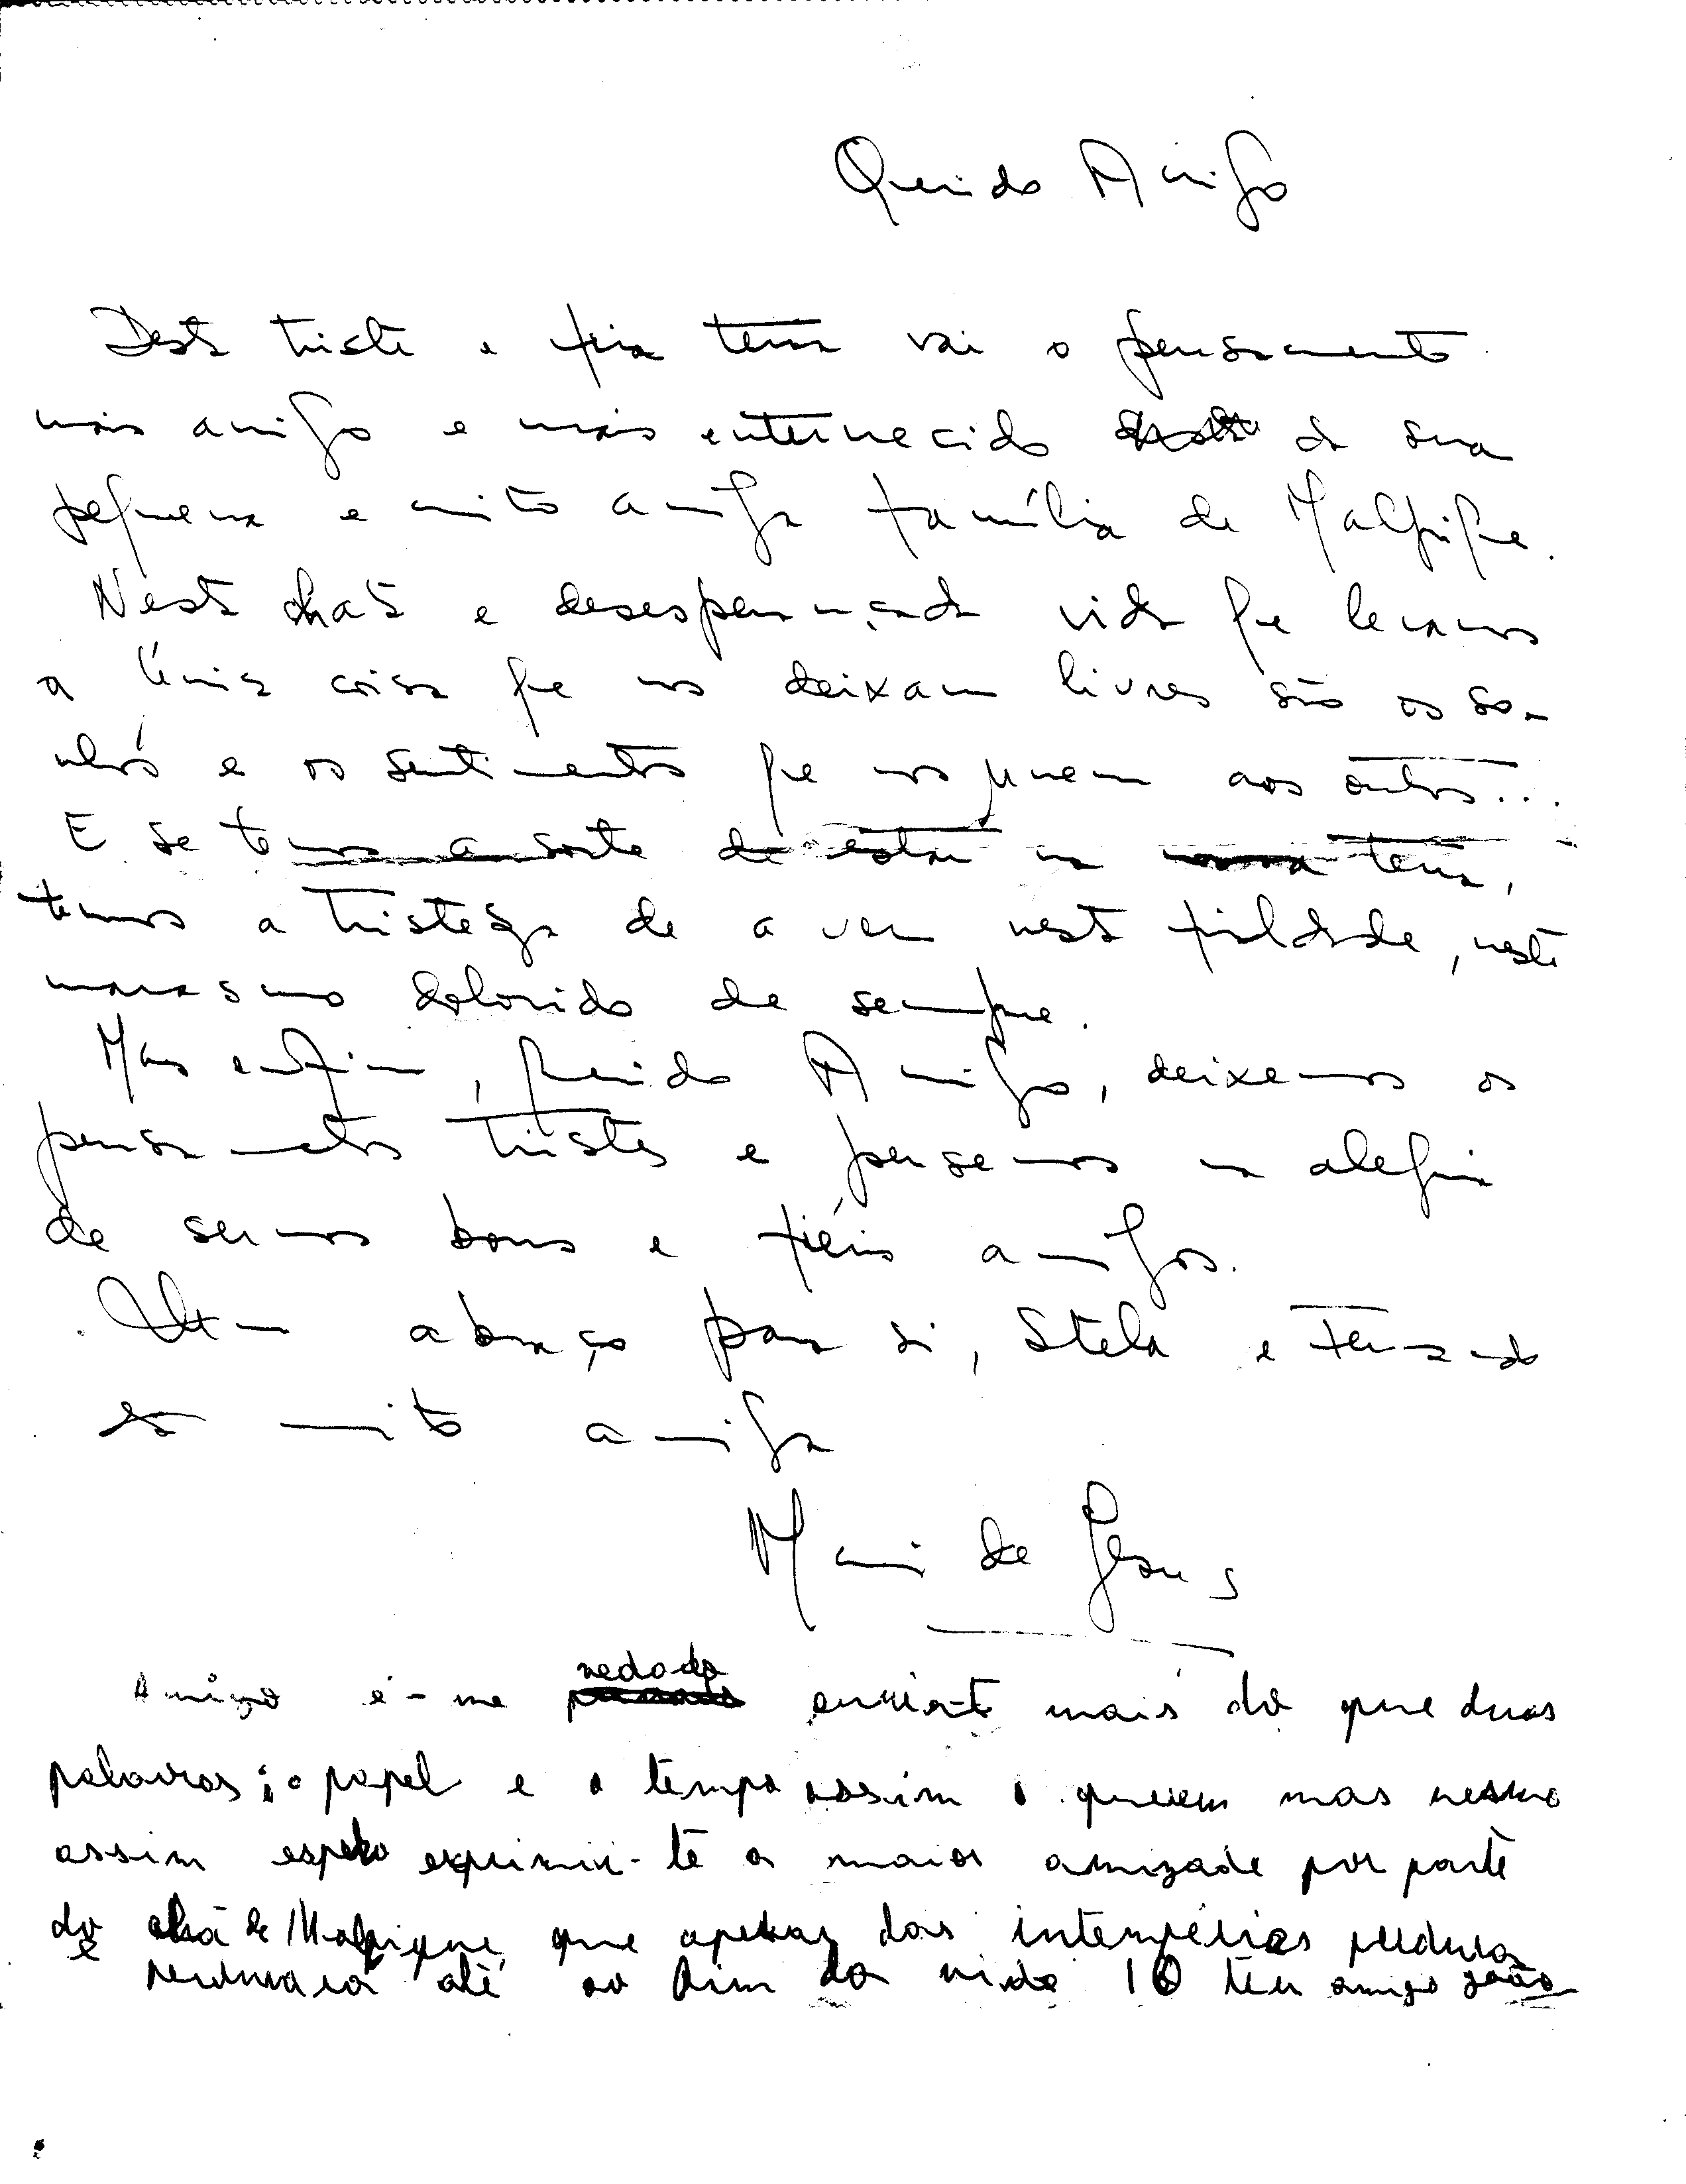 Querido Amigo
Desta triste e fria terra vai o pensamento
mais amigo e mais enternecido da sua
pequena e muito amiga família de Malpique.
Nesta chata e desesperançada vida que levamos
a única coisa que nos deixam livres são os so-
nhos e os sentimentos que nos unem aos outros...
E se temos a sorte de estar na nossa terra,
temos a tristeza de a ver nesta frialdade, neste
marasmo dolorido de sempre.
Mas enfim, querido Amigo, deixemos os
pensamentos tristes e pensemos na alegria
de sermos bons e fiéis amigos.
Um abraço para si, Stela e Fernando
da muito amiga
Maria de Jesus
Amigo é-me vedado enviar-te mais do que duas
palavras; o papel e o tempo assim o querem mas mesmo
assim espero exprimir-te a maior amizade por parte
do chã de Malpique que apesar das intempéries perdura
e perdurará até ao fim da vida O teu amigo João